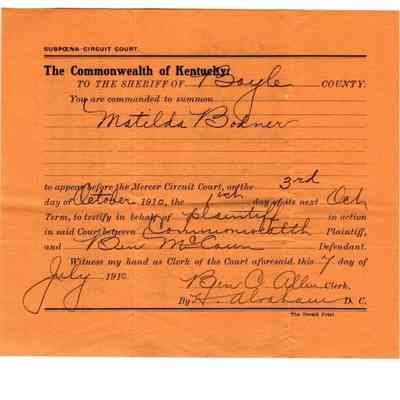 SUBPŒNA-CIRCUIT COURT.
The Commonwealth of Kentucky:
TO THE SHERIFF OF Boyle COUNTY:
You are commanded to summon
Matilda Bohner
to appear before the Mercer Circuit Court, on the 3rd
day of October 1910, the day of its next Oct
Term, to testify in behalf of plaintiff in action
in said Court between Commonwealth Plaintiff,
and Ben McCown Defendant.
Witness my hand as Clerk of the Court aforesaid, this 7 day of
July 1910
Ben C. Allen Clerk,
By H. Abraham D. C.
The Herald Print